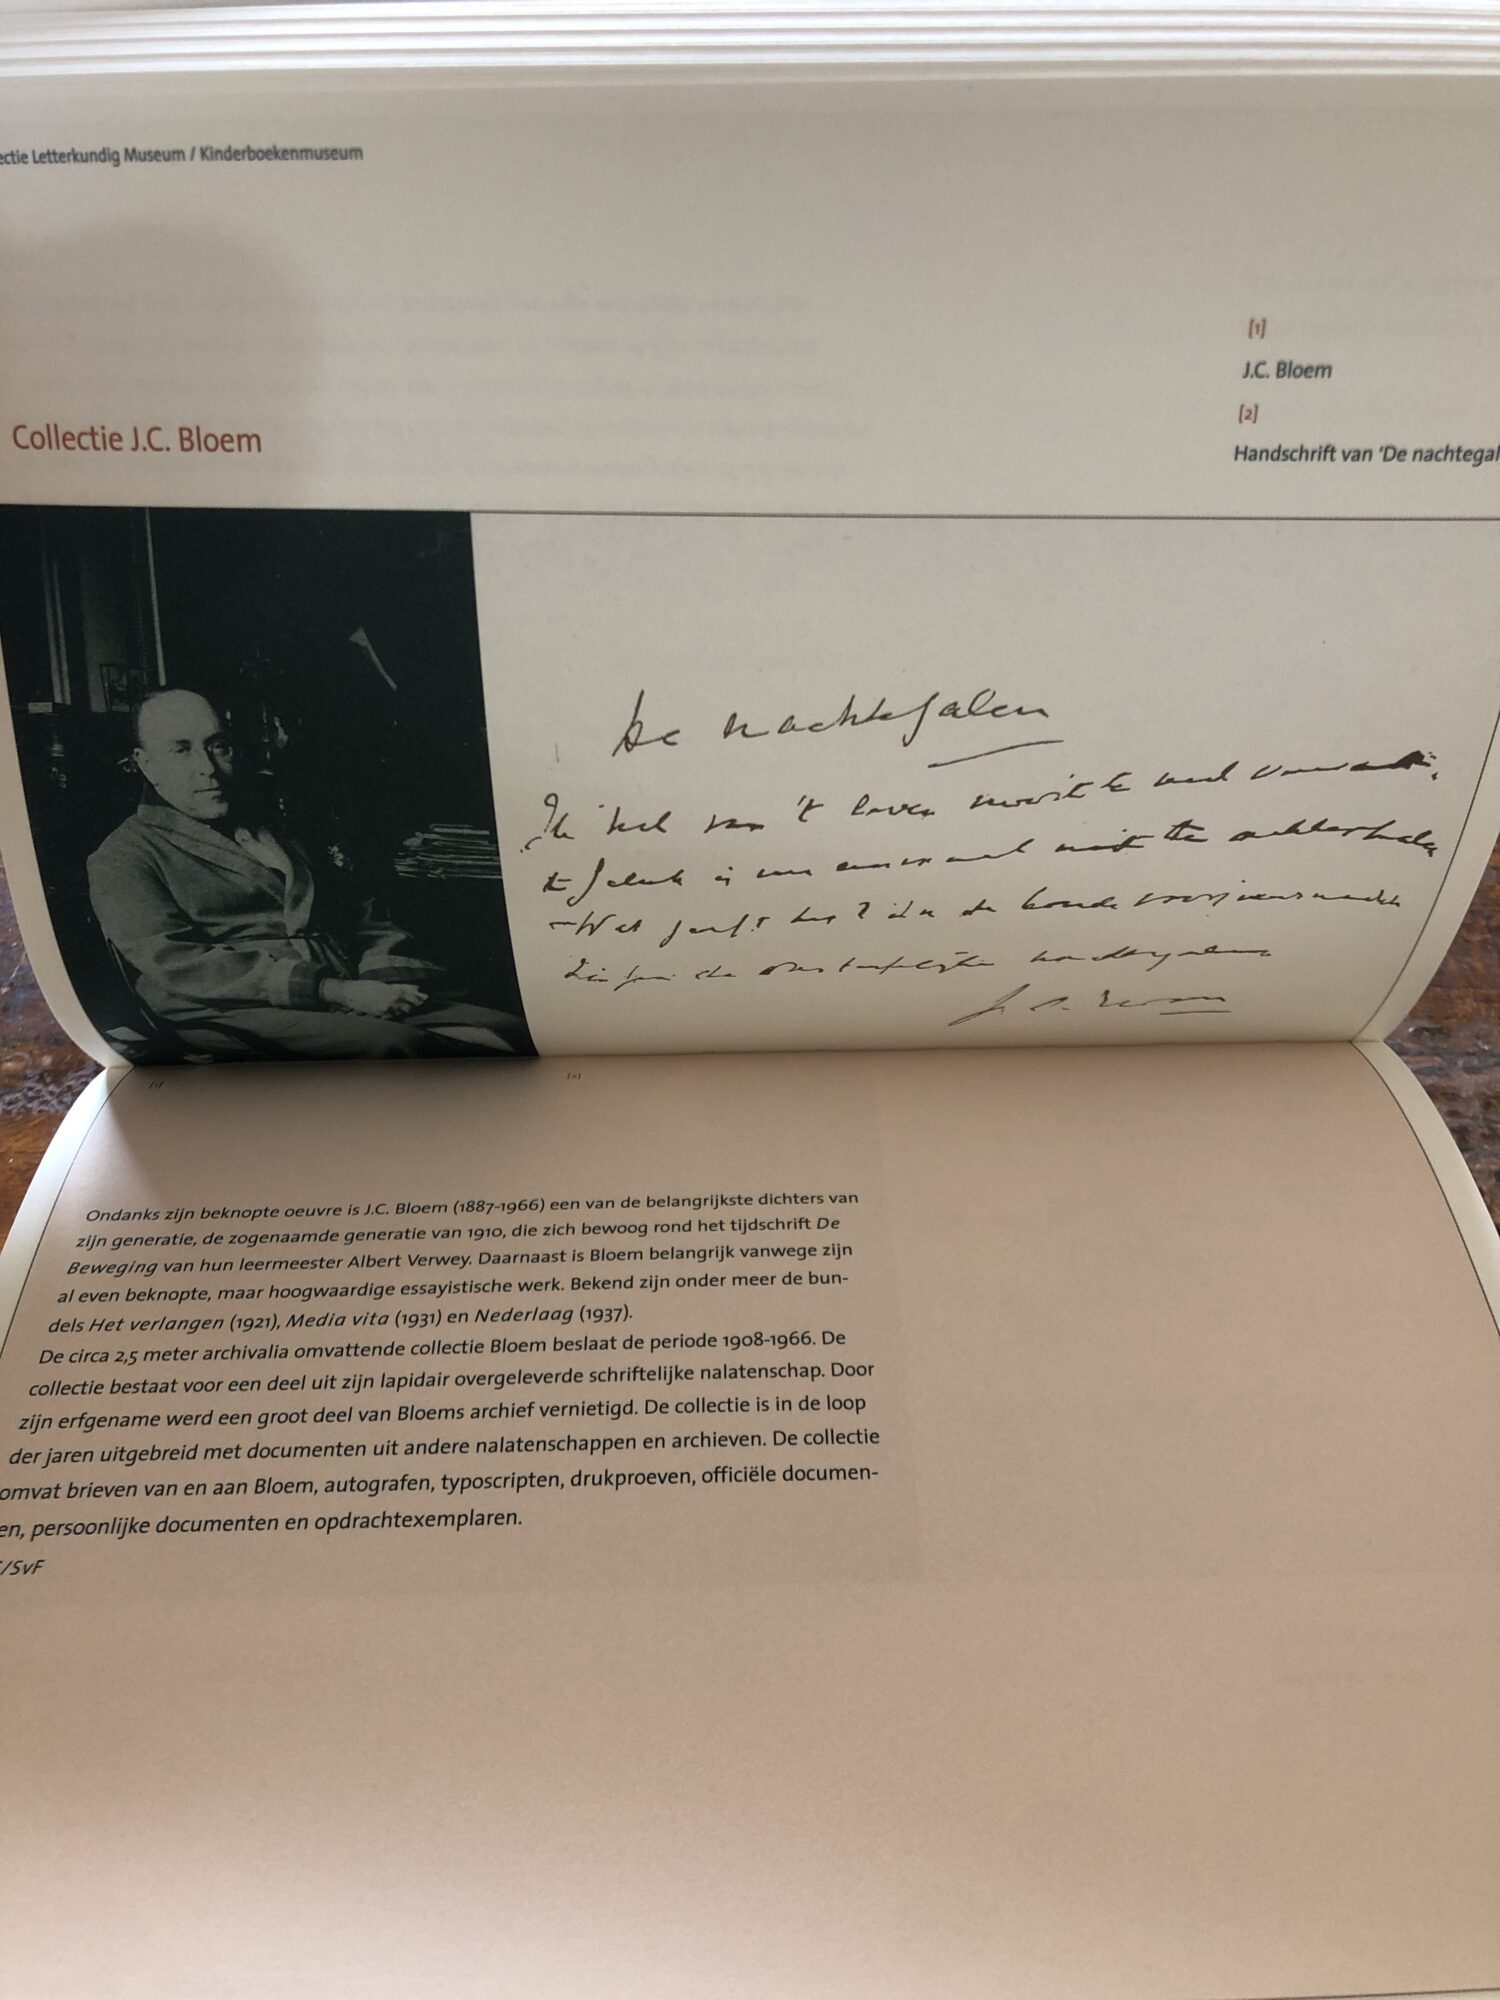 ectie Letterkundig Museum / Kinderboekenmuseum
[1]
J.C. Bloem
[2]
Handschrift van ‘De nachtegal
Collectie J.C. Bloem
De nachtegalen
Ik heb van 't leven nooit te veel verwacht,
't geluk is nu eenmaal niet te achterhalen
– Wat geeft het? in de koude voorjaarsnacht
Zingen de onsterfelijke nachtegalen
J. C. Bloem
[1] [2]
Ondanks zijn beknopte oeuvre is J.C. Bloem (1887-1966) een van de belangrijkste dichters van
zijn generatie, de zogenaamde generatie van 1910, die zich bewoog rond het tijdschrift De
Beweging van hun leermeester Albert Verwey. Daarnaast is Bloem belangrijk vanwege zijn
al even beknopte, maar hoogwaardige essayistische werk. Bekend zijn onder meer de bun-
dels Het verlangen (1921), Media vita (1931) en Nederlaag (1937).
De circa 2,5 meter archivalia omvattende collectie Bloem beslaat de periode 1908-1966. De
collectie bestaat voor een deel uit zijn lapidair overgeleverde schriftelijke nalatenschap. Door
zijn erfgename werd een groot deel van Bloems archief vernietigd. De collectie is in de loop
der jaren uitgebreid met documenten uit andere nalatenschappen en archieven. De collectie
omvat brieven van en aan Bloem, autografen, typoscripten, drukproeven, officiële documen-
en, persoonlijke documenten en opdrachtexemplaren.
/SvF